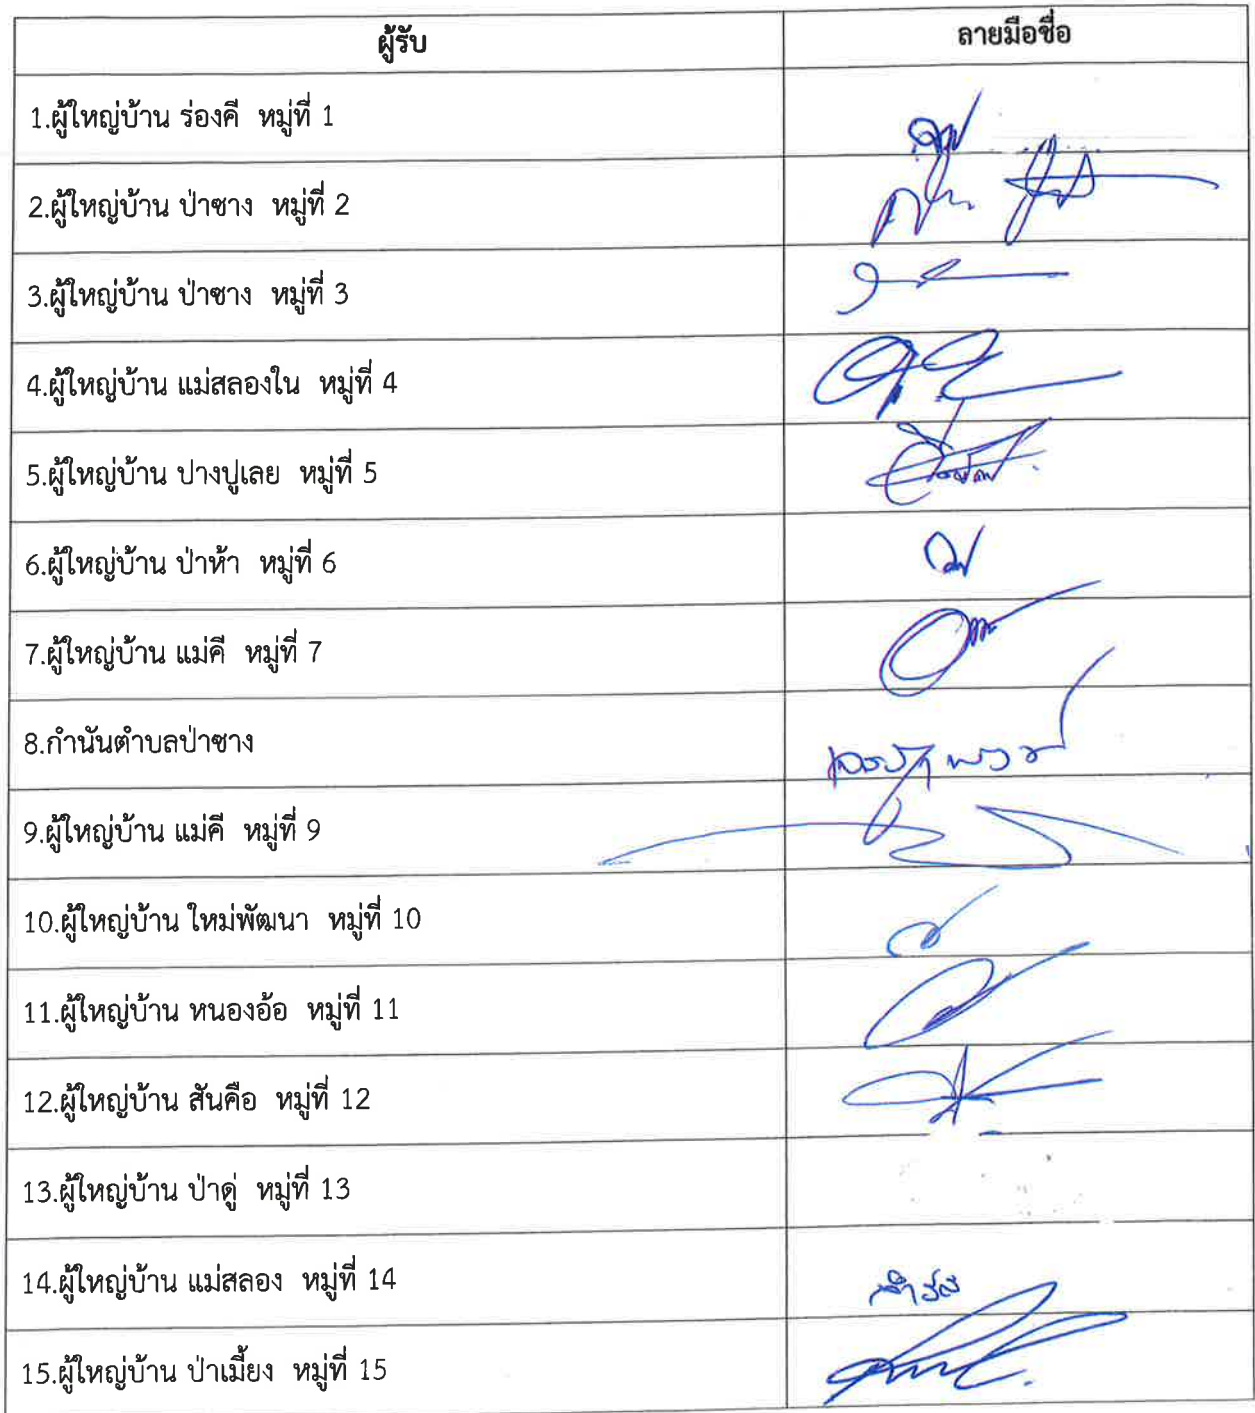 ผู้รับ ลายมือชื่อ
1.ผู้ใหญ่บ้าน ร่องคี หมู่ที่ 1
2.ผู้ใหญ่บ้าน ป่าซาง หมู่ที่ 2
3.ผู้ใหญ่บ้าน ป่าซาง หมู่ที่ 3
4.ผู้ใหญ่บ้าน แม่สลองใน หมู่ที่ 4
5.ผู้ใหญ่บ้าน ปางปูเลย หมู่ที่ 5
6.ผู้ใหญ่บ้าน ป่าห้า หมู่ที่ 6
7.ผู้ใหญ่บ้าน แม่คี หมู่ที่ 7
8.กำนันตำบลป่าซาง
9.ผู้ใหญ่บ้าน แม่คี หมู่ที่ 9
10.ผู้ใหญ่บ้าน ใหม่พัฒนา หมู่ที่ 10
11.ผู้ใหญ่บ้าน หนองอ้อ หมู่ที่ 11
12.ผู้ใหญ่บ้าน สันคือ หมู่ที่ 12
13.ผู้ใหญ่บ้าน ป่าดู่ หมู่ที่ 13
14.ผู้ใหญ่บ้าน แม่สลอง หมู่ที่ 14
15.ผู้ใหญ่บ้าน ป่าเมี้ยง หมู่ที่ 15